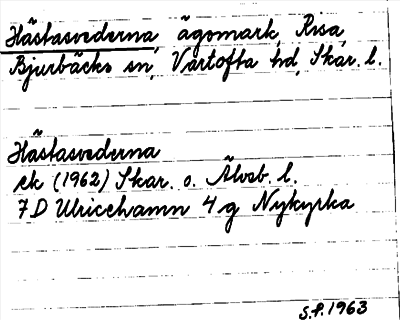 Hästasvederna, ägomark, Risa,
Bjurbäcks sn, Vartofta hd, Skar. l.
Hästasvederna
ek (1962) Skar. o. Älvsb. l.
7D Ulricehamn 4g Nykyrka
S.F. 1963